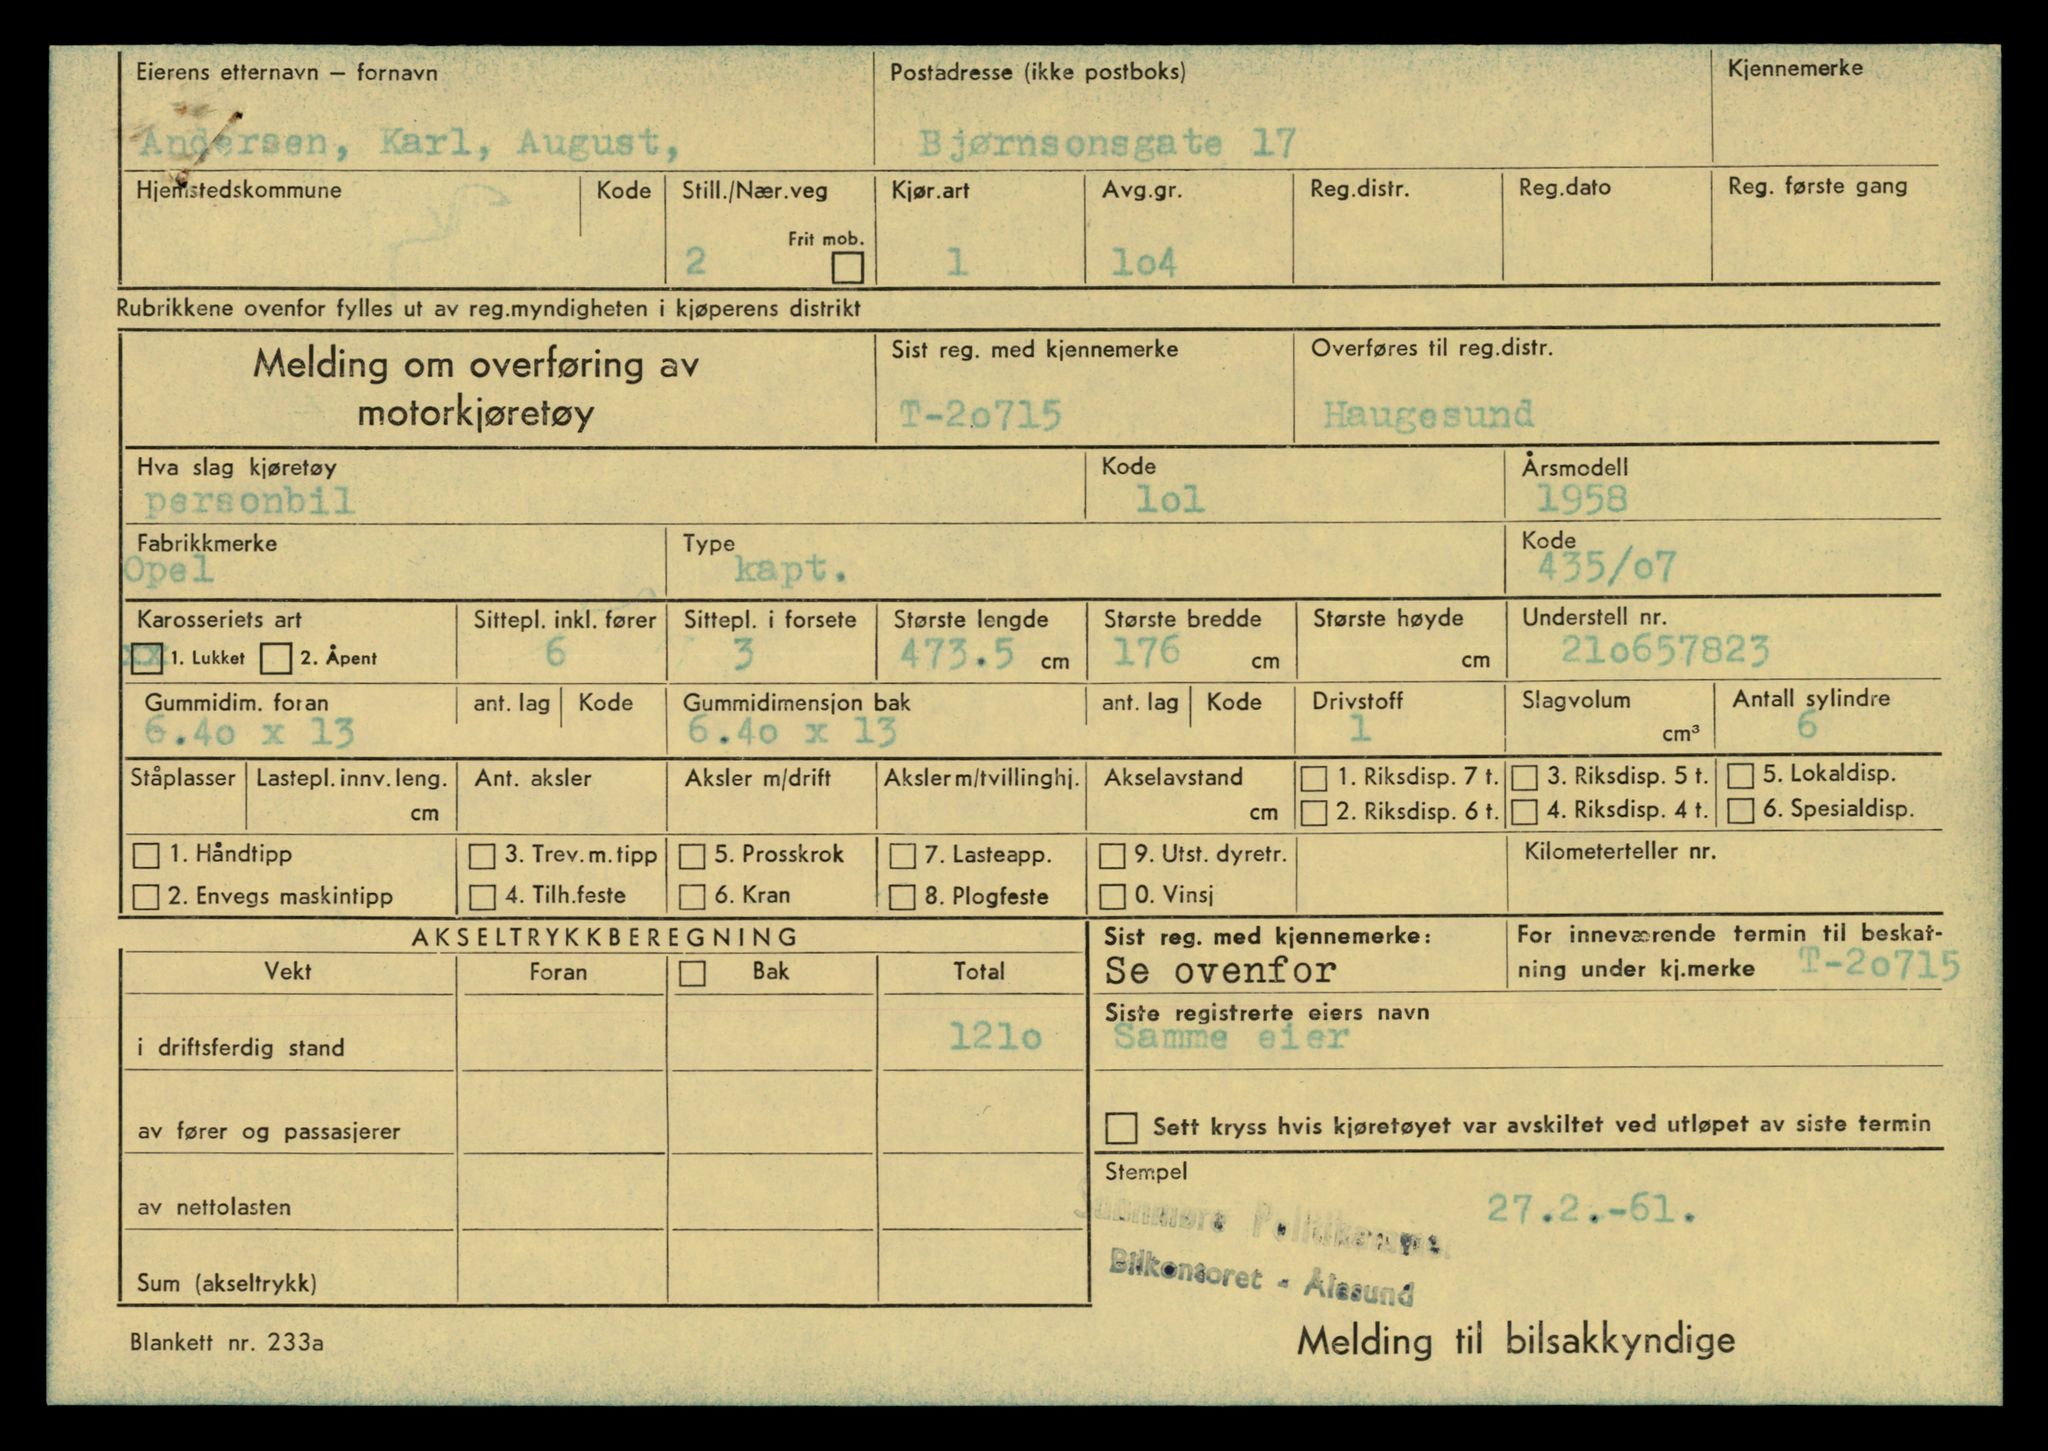 Eierens etternavn – fornavn Postadresse (ikke postboks) Kjennemerke
Andersen, Karl, August, Bjørnsonsgate 17
Hjemstedskommune Kode Still./Nær.veg Kjør.art Avg.gr. Reg.distr. Reg.dato Reg. første gang
Frit mob.
2 1 lo4
Rubrikkene ovenfor fylles ut av reg.myndigheten i kjøperens distrikt
Melding om overføring av motorkjøretøy
Sist reg. med kjennemerke Overføres til reg.distr.
T-2o715 Haugesund
Hva slag kjøretøy Kode Årsmodell
personbil lol 1958
Fabrikkmerke Type Kode
Opel kapt. 435/o7
Karosseriets art Sittepl. inkl. fører Sittepl. i forsete Største lengde Største bredde Største høyde Understell nr.
xx 1. Lukket 2. Åpent 6 3 473.5 cm 176 cm cm 21o657823
Gummidim. foran ant. lag Kode Gummidimensjon bak ant. lag Kode Drivstoff Slagvolum Antall sylindre
6.4o x 13 6.4o x 13 1 cm³ 6
Ståplasser Lastepl. innv. leng. Ant. aksler Aksler m/drift Aksler m/tvillinghj. Akselavstand 1. Riksdisp. 7 t. 3. Riksdisp. 5 t. 5. Lokaldisp.
cm cm 2. Riksdisp. 6 t. 4. Riksdisp. 4 t. 6. Spesialdisp.
1. Håndtipp 3. Trev. m. tipp 5. Prosskrok 7. Lasteapp. 9. Utst. dyretr. Kilometerteller nr.
2. Envegs maskintipp 4. Tilh.feste 6. Kran 8. Plogfeste 0. Vinsj
AKSELTRYKKBEREGNING
Vekt Foran Bak Total
i driftsferdig stand 121o
av fører og passasjerer
av nettolasten
Sum (akseltrykk)
Sist reg. med kjennemerke: For inneværende termin til beskat-
Se ovenfor ning under kj.merke T-2o715
Siste registrerte eiers navn
Samme eier
Sett kryss hvis kjøretøyet var avskiltet ved utløpet av siste termin
Stempel
27.2.-61.
Bilkontoret - Ålesund
Blankett nr. 233a Melding til bilsakkyndige